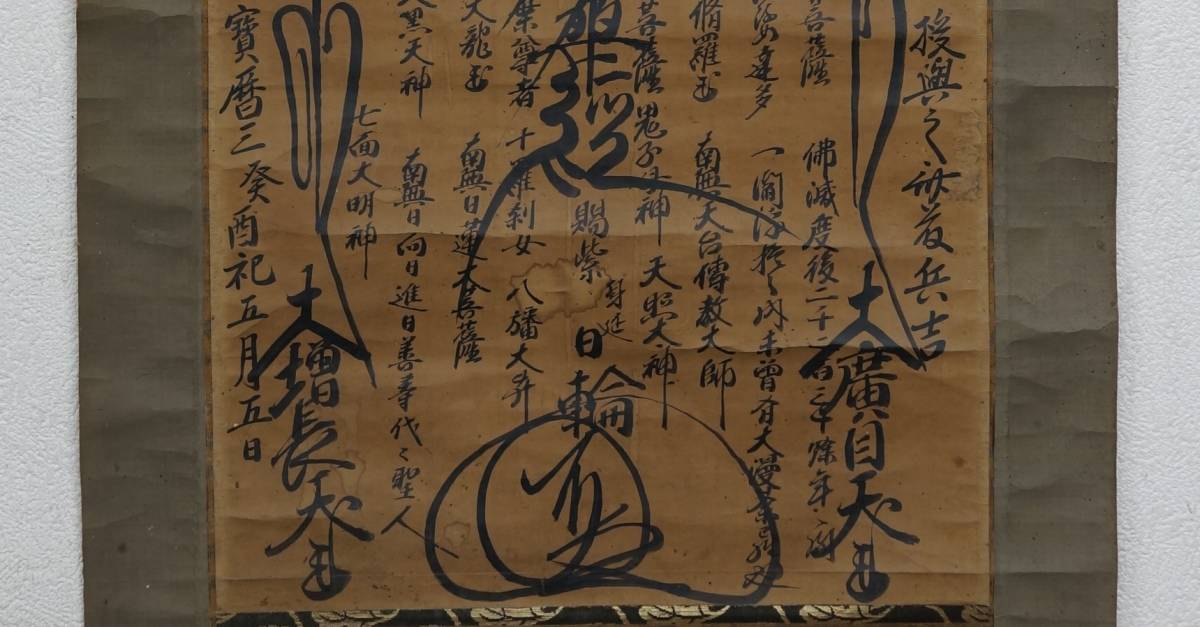 授與之
兵吉
大廣目天王
菩薩
佛滅度後二千二百三十餘年
婆達多
一閻浮提之内未曾有大漫荼羅也
脩羅王
南無天台傳教大師
菩薩
鬼子母神
天照大神
賜紫
身延
日輪
尊者
十羅刹女
八幡大菩薩
大龍王
南無日蓮大菩薩
大黑天神
南無日向日進日善等代々聖人
七面大明神
大增長天王
寶曆三癸酉祀五月五日